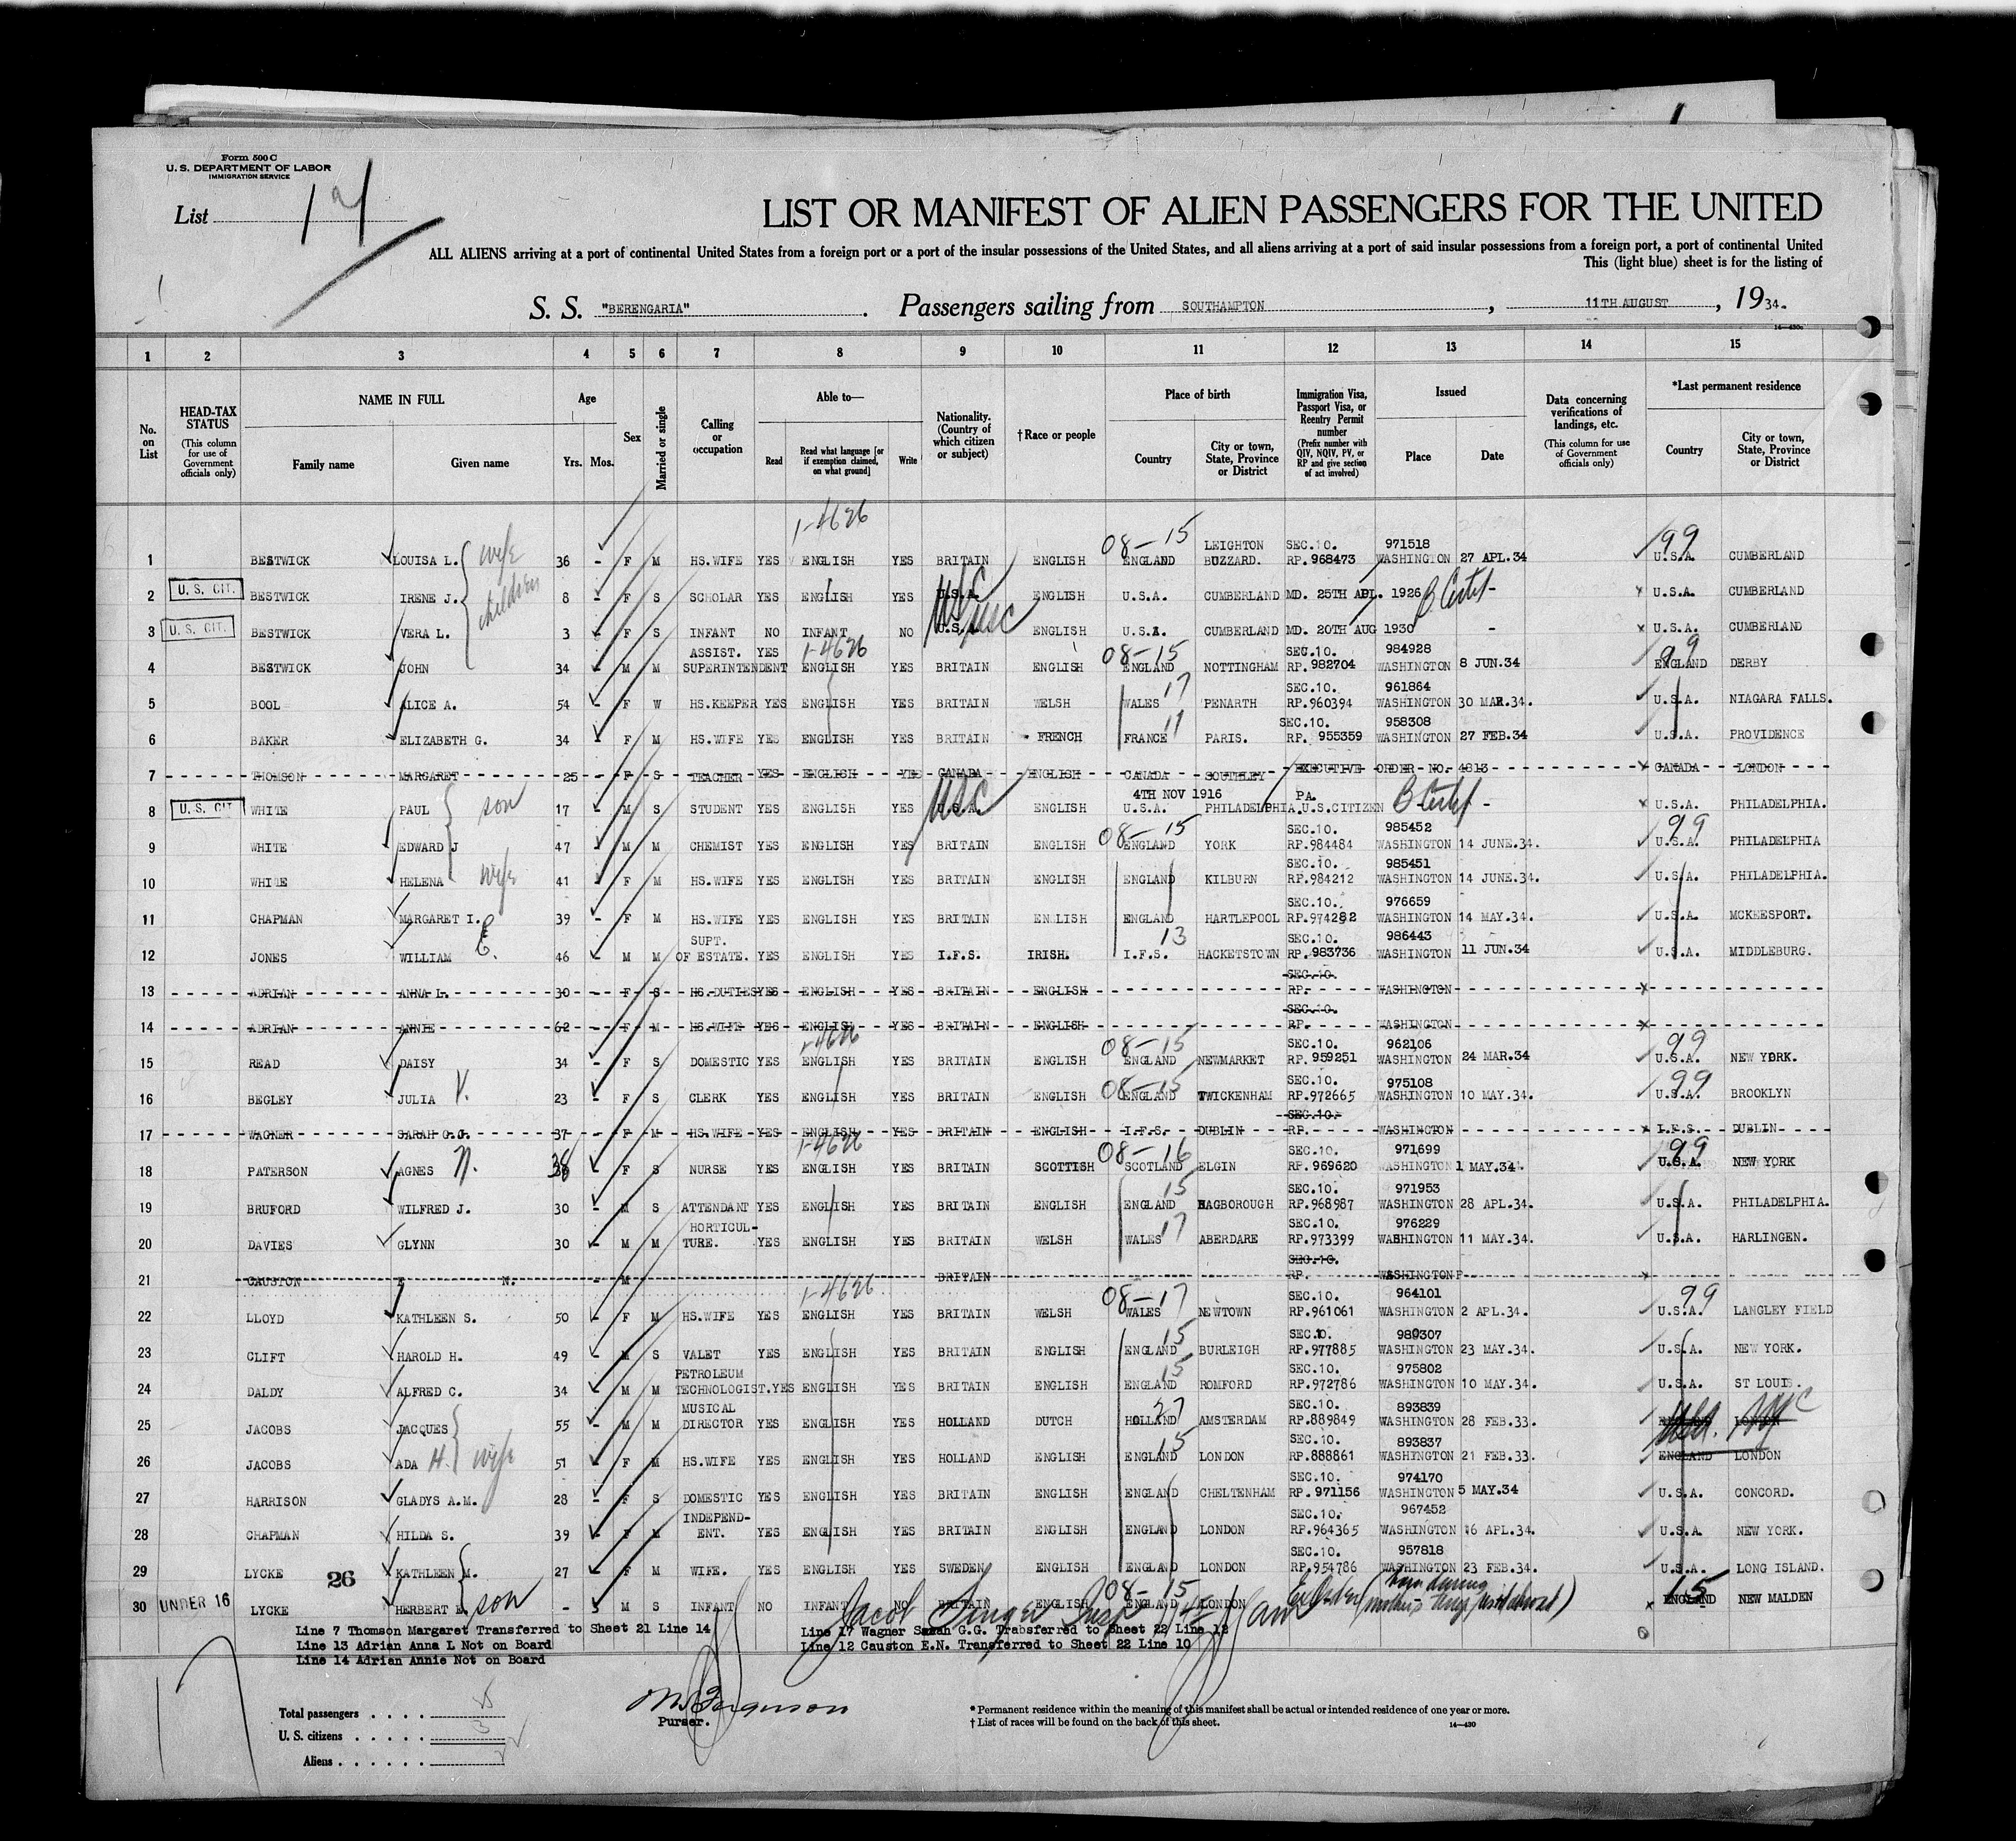 Form 500 C
U. S. DEPARTMENT OF LABOR
IMMIGRATION SERVICE
List
LIST OR MANIFEST OF ALIEN PASSENGERS FOR THE UNITED
ALL ALIENS arriving at a port of continental United States from a foreign port or a port of the insular possessions of the United States, and all aliens arriving at a port of said insular possessions from a foreign port, a port of continental United
This (light blue) sheet is for the listing of
S. S. "BERENGARIA" . Passengers sailing from SOUTHAMPTON , 11TH AUGUST , 1934.
14—430c
1 2 3 4 5 6 7 8 9 10 11 12 13 14 15
No. on List
HEAD-TAX STATUS (This column for use of Government officials only)
NAME IN FULL Family name Given name
Age Yrs. Mos.
Sex
Married or single
Calling or occupation
Able to— Read Read what language [or if exemption claimed, on what ground] Write
Nationality. (Country of which citizen or subject)
† Race or people
Place of birth Country City or town, State, Province or District
Immigration Visa, Passport Visa, or Reentry Permit number (Prefix number with QIV, NQIV, PV, or RP and give section of act involved)
Issued Place Date
Data concerning verifications of landings, etc. (This column for use of Government officials only)
*Last permanent residence Country City or town, State, Province or District
1-4626 08-15 LEIGHTON SEC.10. 971518 99
1 BESTWICK LOUISA L. wife 36 - F M HS.WIFE YES ENGLISH YES BRITAIN ENGLISH ENGLAND BUZZARD. RP.968473 WASHINGTON 27 APL.34 U.S.A. CUMBERLAND
2 U. S. CIT. BESTWICK IRENE J. children 8 - F S SCHOLAR YES ENGLISH YES U.S.A. USC ENGLISH U.S.A. CUMBERLAND MD. 25TH APL. 1926 B Certf - U.S.A. CUMBERLAND
3 U. S. CIT. BESTWICK VERA L. 3 - F S INFANT NO INFANT NO U.S.A. USC ENGLISH U.S.A. CUMBERLAND MD. 20TH AUG 1930 - U.S.A. CUMBERLAND
ASSIST. YES 1-4626 08-15 SEC.10. 984928 99
4 BESTWICK JOHN 34 - M M SUPERINTENDENT ENGLISH YES BRITAIN ENGLISH ENGLAND NOTTINGHAM RP.982704 WASHINGTON 8 JUN.34 ENGLAND DERBY
17 SEC.10. 961864
5 BOOL ALICE A. 54 - F W HS.KEEPER YES ENGLISH YES BRITAIN WELSH WALES PENARTH RP.960394 WASHINGTON 30 MAR.34. U.S.A. NIAGARA FALLS.
11 SEC.10. 958308
6 BAKER ELIZABETH G. 34 - F M HS.WIFE YES ENGLISH YES BRITAIN FRENCH FRANCE PARIS. RP. 955359 WASHINGTON 27 FEB.34 U.S.A. PROVIDENCE
7 THOMSON MARGARET 25 - F S TEACHER YES ENGLISH YES CANADA ENGLISH CANADA SOUTHLEY EXECUTIVE ORDER NO. 4813 CANADA LONDON
4TH NOV 1916 PA.
8 U. S. CIT WHITE PAUL son 17 - M S STUDENT YES ENGLISH YES U.S.A. USC ENGLISH U.S.A. PHILADELPHIA.U.S.CITIZEN B Certf - U.S.A. PHILADELPHIA.
08-15 SEC.10. 985452 99
9 WHITE EDWARD J 47 - M M CHEMIST YES ENGLISH YES BRITAIN ENGLISH ENGLAND YORK RP.984484 WASHINGTON 14 JUNE.34. U.S.A. PHILADELPHIA
SEC.10. 985451
10 WHITE HELENA wife 41 - F M HS.WIFE YES ENGLISH YES BRITAIN ENGLISH ENGLAND KILBURN RP.984212 WASHINGTON 14 JUNE.34. U.S.A. PHILADELPHIA.
SEC.10. 976659
11 CHAPMAN MARGARET I. 39 - F M HS.WIFE YES ENGLISH YES BRITAIN ENLISH ENGLAND HARTLEPOOL RP.974282 WASHINGTON 14 MAY.34. U.S.A. MCKEESPORT.
SUPT. 13 SEC.10. 986443
12 JONES WILLIAM E. 46 - M M OF ESTATE. YES ENGLISH YES I.F.S. IRISH. I.F.S. HACKETSTOWN RP.983736 WASHINGTON 11 JUN.34 U.S.A. MIDDLEBURG.
SEC.10.
13 ADRIAN ANNA L. 30 - F S HS.DUTIES YES ENGLISH YES BRITAIN ENGLISH RP. WASHINGTON
SEC.10.
14 ADRIAN ANNIE 62 - F M HS.WIFE YES ENGLISH YES BRITAIN ENGLISH RP. WASHINGTON
1-4626 08-15 SEC.10. 962106 99
15 READ DAISY 34 - F S DOMESTIC YES ENGLISH YES BRITAIN ENGLISH ENGLAND NEWMARKET RP. 959251 WASHINGTON 24 MAR.34 U.S.A. NEW YORK.
08-15 SEC.10. 975108 99
16 BEGLEY JULIA V. 23 - F S CLERK YES ENGLISH YES BRITAIN ENGLISH ENGLAND TWICKENHAM RP.972665 WASHINGTON 10 MAY.34. U.S.A. BROOKLYN
SEC.10.
17 WAGNER SARAH G.G. 37 - F M HS.WIFE YES ENGLISH YES BRITAIN ENGLISH I.F.S. DUBLIN RP. WASHINGTON I.F.S. DUBLIN
1-4626 08-16 SEC.10. 971699 99
18 PATERSON AGNES N. 38 - F S NURSE YES ENGLISH YES BRITAIN SCOTTISH SCOTLAND ELGIN RP.969620 WASHINGTON 1 MAY.34. U.S.A. NEW YORK
15 SEC.10. 971953
19 BRUFORD WILFRED J. 30 - M S ATTENDANT YES ENGLISH YES BRITAIN ENGLISH ENGLAND HAGBOROUGH RP.968987 WASHINGTON 28 APL.34. U.S.A. PHILADELPHIA.
HORTICUL- 17 SEC.10. 976229
20 DAVIES GLYNN 30 - M M TURE. YES ENGLISH YES BRITAIN WELSH WALES ABERDARE RP.973399 WASHINGTON 11 MAY.34. U.S.A. HARLINGEN.
SEC.10.
21 CAUSTON E N. - M BRITAIN RP. WASHINGTON
1-4626 08-17 SEC.10. 964101 99
22 LLOYD KATHLEEN S. 50 - F M HS.WIFE YES ENGLISH YES BRITAIN WELSH WALES NEWTOWN RP.961061 WASHINGTON 2 APL.34. U.S.A. LANGLEY FIELD
15 SEC.10. 980307
23 CLIFT HAROLD H. 49 - M S VALET YES ENGLISH YES BRITAIN ENGLISH ENGLAND BURLEIGH RP.977885 WASHINGTON 23 MAY.34. U.S.A. NEW YORK.
PETROLEUM 15 SEC.10. 975802
24 DALDY ALFRED C. 34 - M M TECHNOLOGIST.YES ENGLISH YES BRITAIN ENGLISH ENGLAND ROMFORD RP.972786 WASHINGTON 10 MAY.34. U.S.A. ST LOUIS.
MUSICAL 27 SEC.10. 893839
25 JACOBS JACQUES 55 - M M DIRECTOR YES ENGLISH YES HOLLAND DUTCH HOLLAND AMSTERDAM RP.889849 WASHINGTON 28 FEB.33. ENGLAND LONDON
15 SEC.10. 893837
26 JACOBS ADA H. wife 51 - F M HS.WIFE YES ENGLISH YES HOLLAND ENGLISH ENGLAND LONDON RP.888861 WASHINGTON 21 FEB.33. ENGLAND LONDON
SEC.10. 974170
27 HARRISON GLADYS A.M. 28 - F S DOMESTIC YES ENGLISH YES BRITAIN ENGLISH ENGLAND CHELTENHAM RP.971156 WASHINGTON 5 MAY.34 U.S.A. CONCORD.
INDEPEND- SEC.10. 967452
28 CHAPMAN HILDA S. 39 - F M ENT. YES ENGLISH YES BRITAIN ENGLISH ENGLAND LONDON RP.964365 WASHINGTON 16 APL.34. U.S.A. NEW YORK.
SEC.10. 957818
29 LYCKE 26 KATHLEEN M. 27 - F M WIFE. YES ENGLISH YES SWEDEN ENGLISH ENGLAND LONDON RP.954786 WASHINGTON 23 FEB.34. U.S.A. LONG ISLAND.
08-15 15
30 UNDER 16 LYCKE HERBERT E. son - 3 M S INFANT NO INFANT NO BRITAIN ENGLISH ENGLAND LONDON ENGLAND NEW MALDEN
Jacob Singer Insp
Line 7 Thomson Margaret Transferred to Sheet 21 Line 14
Line 13 Adrian Anna L Not on Board
Line 14 Adrian Annie Not on Board
Line 17 Wagner Sarah G.G. Trabsferred to Sheet 22 Line 12
Line 12 Causton E.N. Transferred to Sheet 22 Line 10
Total passengers . . . .
U. S. citizens . . . . . 3
Aliens . . . . . .
Purser.
* Permanent residence within the meaning of this manifest shall be actual or intended residence of one year or more.
† List of races will be found on the back of this sheet.
14—430